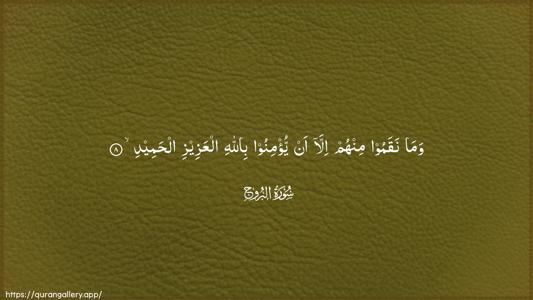 وَمَا نَقَمُوْا مِنْهُمْ اِلَّاۤ اَنْ يُّؤْمِنُوْا بِاللّٰهِ الْعَزِيْزِ الْحَمِيْدِ ۙ ۸
سُوْرَةُ البُرُوج
https://qurangallery.app/